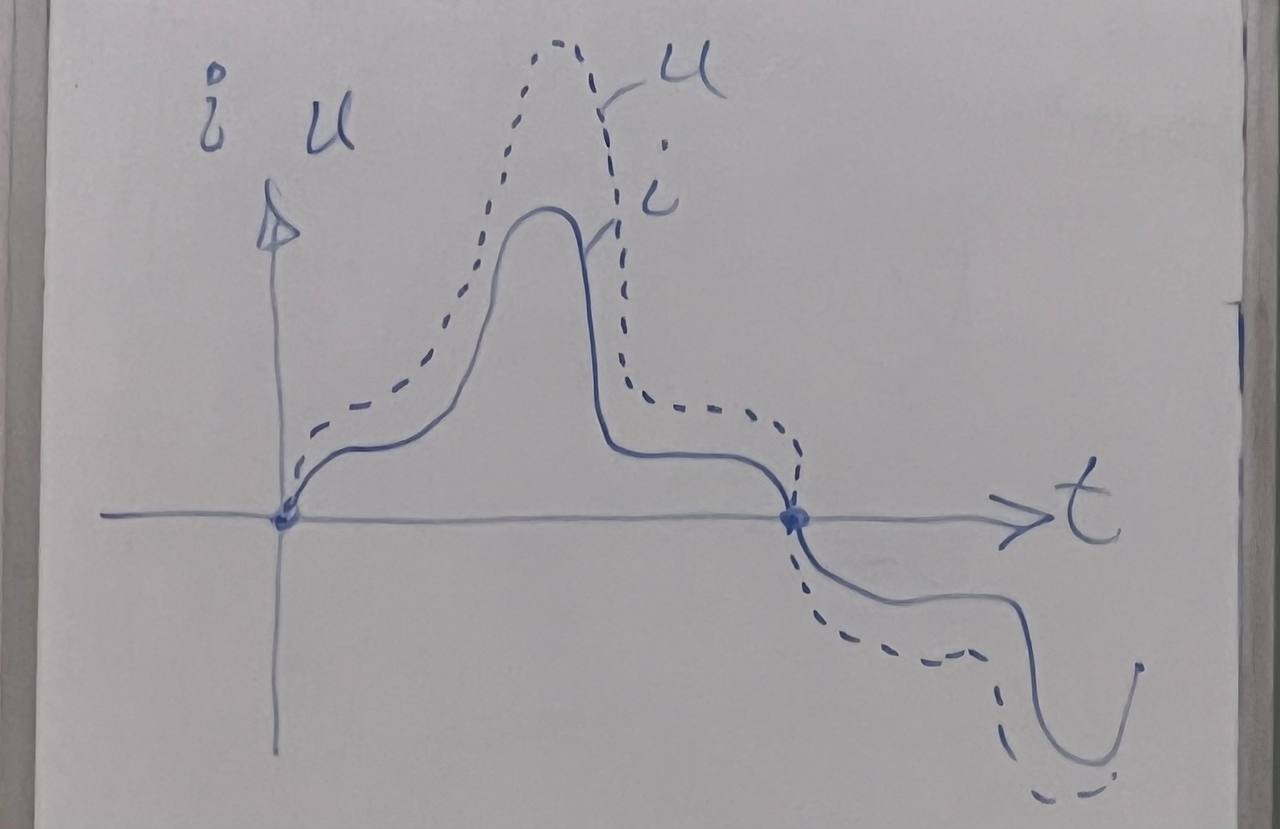 i u
u
i
t